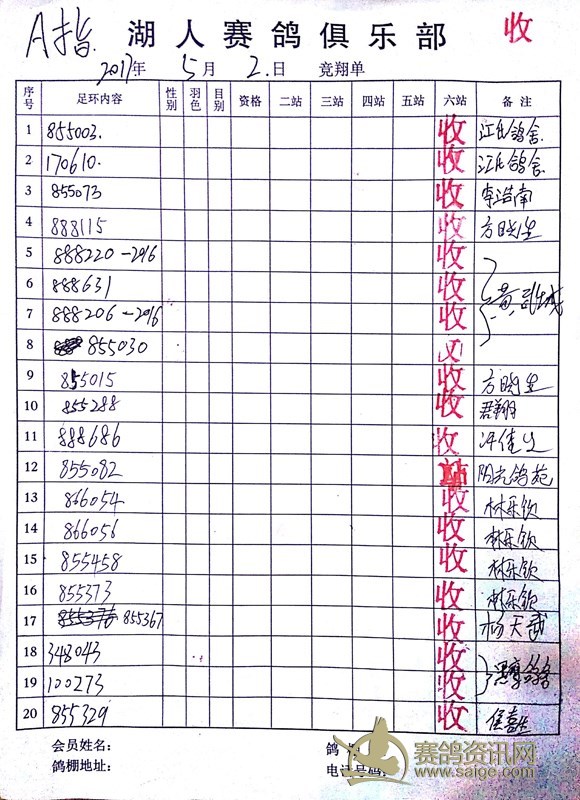 A指. 湖人赛鸽俱乐部 收
2017年 5月 2.日 竞翔单
序号 足环内容 性别 羽色 目别 资格 二站 三站 四站 五站 六站 备注
1 855003. 收 江氏鸽舍
2 170610. 收 江氏鸽舍
3 855073 收 李浩南
4 888115 收 方晓生
5 888220-2016 收
6 888631 收 黄
7 888206-2016 收
8 855030 收
9 855015 收 方晓生
10 855288 收 群翔
11 888686 收
12 855082 阳光鸽苑
13 866054 收 林乐钦
14 866056 收 林乐钦
15 855458 收 林乐钦
16 855373 收 林乐钦
17 855376 855367 收 杨天武
18 348043 收
19 100273 收
20 855329 收 侯喜生
会员姓名: 鸽
鸽棚地址: 电话号码:
赛鸽资讯网
www.saige.com